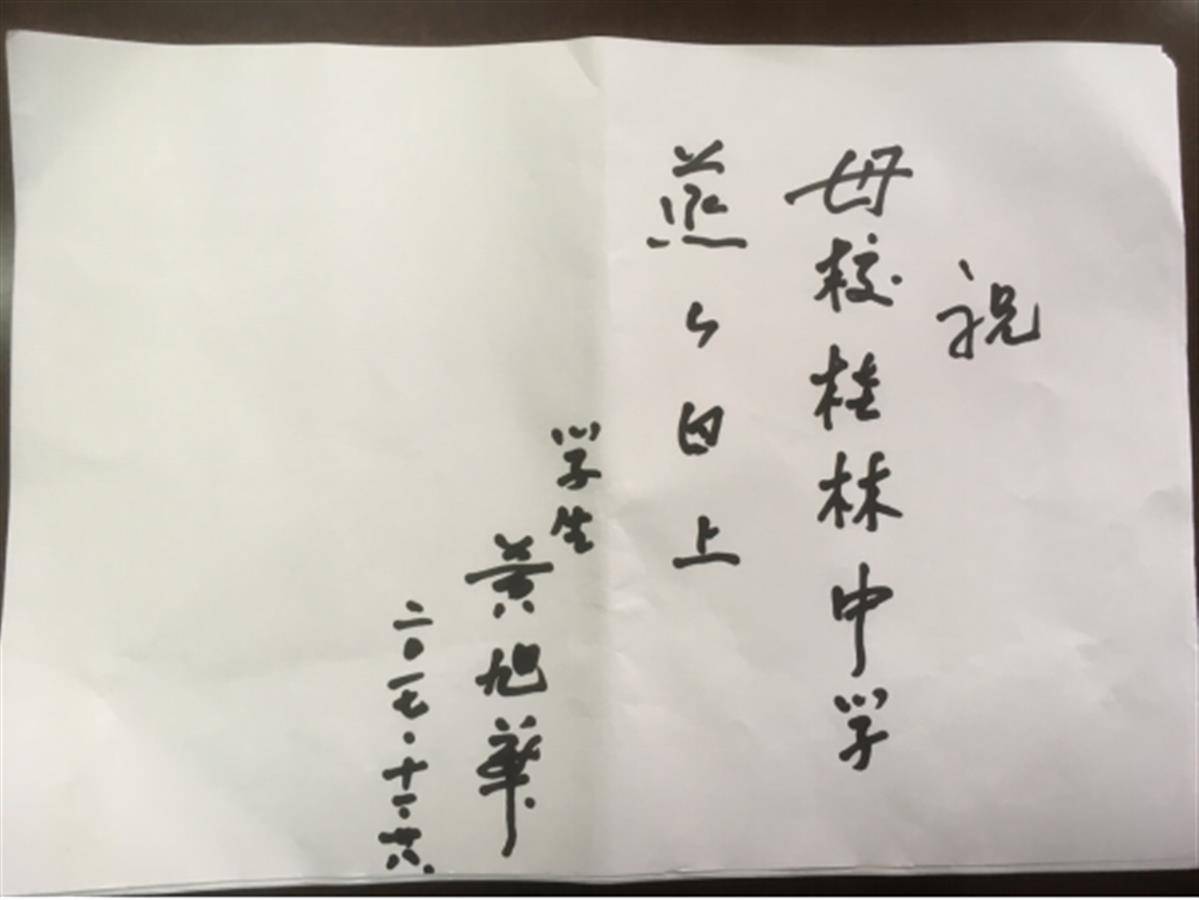 祝
母校桂林中学
蒸々日上
学生
黄旭華
二〇一七·十二·六